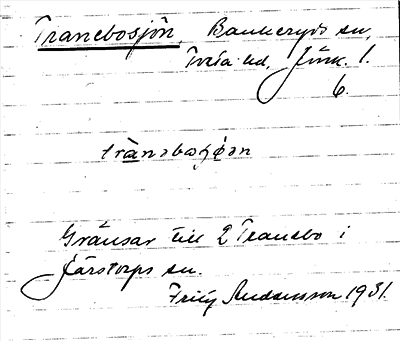 Tranebosjön, Bankeryds sn,
Tveta hd, Jönk. l.
6.
trànəbaʃøən
Gränsar till 2 Tranebo i
Järstorps sn.
Fritz Andersson 1931.